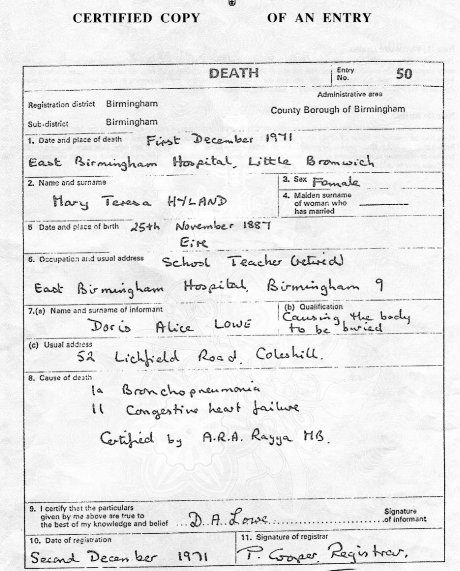 CERTIFIED COPY OF AN ENTRY
DEATH Entry No. 50
Administrative area
Registration district Birmingham County Borough of Birmingham
Sub-district Birmingham
1. Date and place of death First December 1971
East Birmingham Hospital, Little Bromwich
2. Name and surname 3. Sex Female
Mary Teresa HYLAND 4. Maiden surname of woman who has married
5 Date and place of birth 25th November 1887
Eire
6. Occupation and usual address School Teacher (retired)
East Birmingham Hospital, Birmingham 9
7.(a) Name and surname of informant (b) Qualification
Doris Alice LOWE Causing the body to be buried
(c) Usual address
52 Lichfield Road, Coleshill.
8. Cause of death
1a Bronchopneumonia
11 Congestive heart failure
Certified by A.R.A. Rayya MB.
9. I certify that the particulars
given by me above are true to
the best of my knowledge and belief D. A. Lowe Signature of informant
10. Date of registration 11. Signature of registrar
Second December 1971 P. Cooper, Registrar.